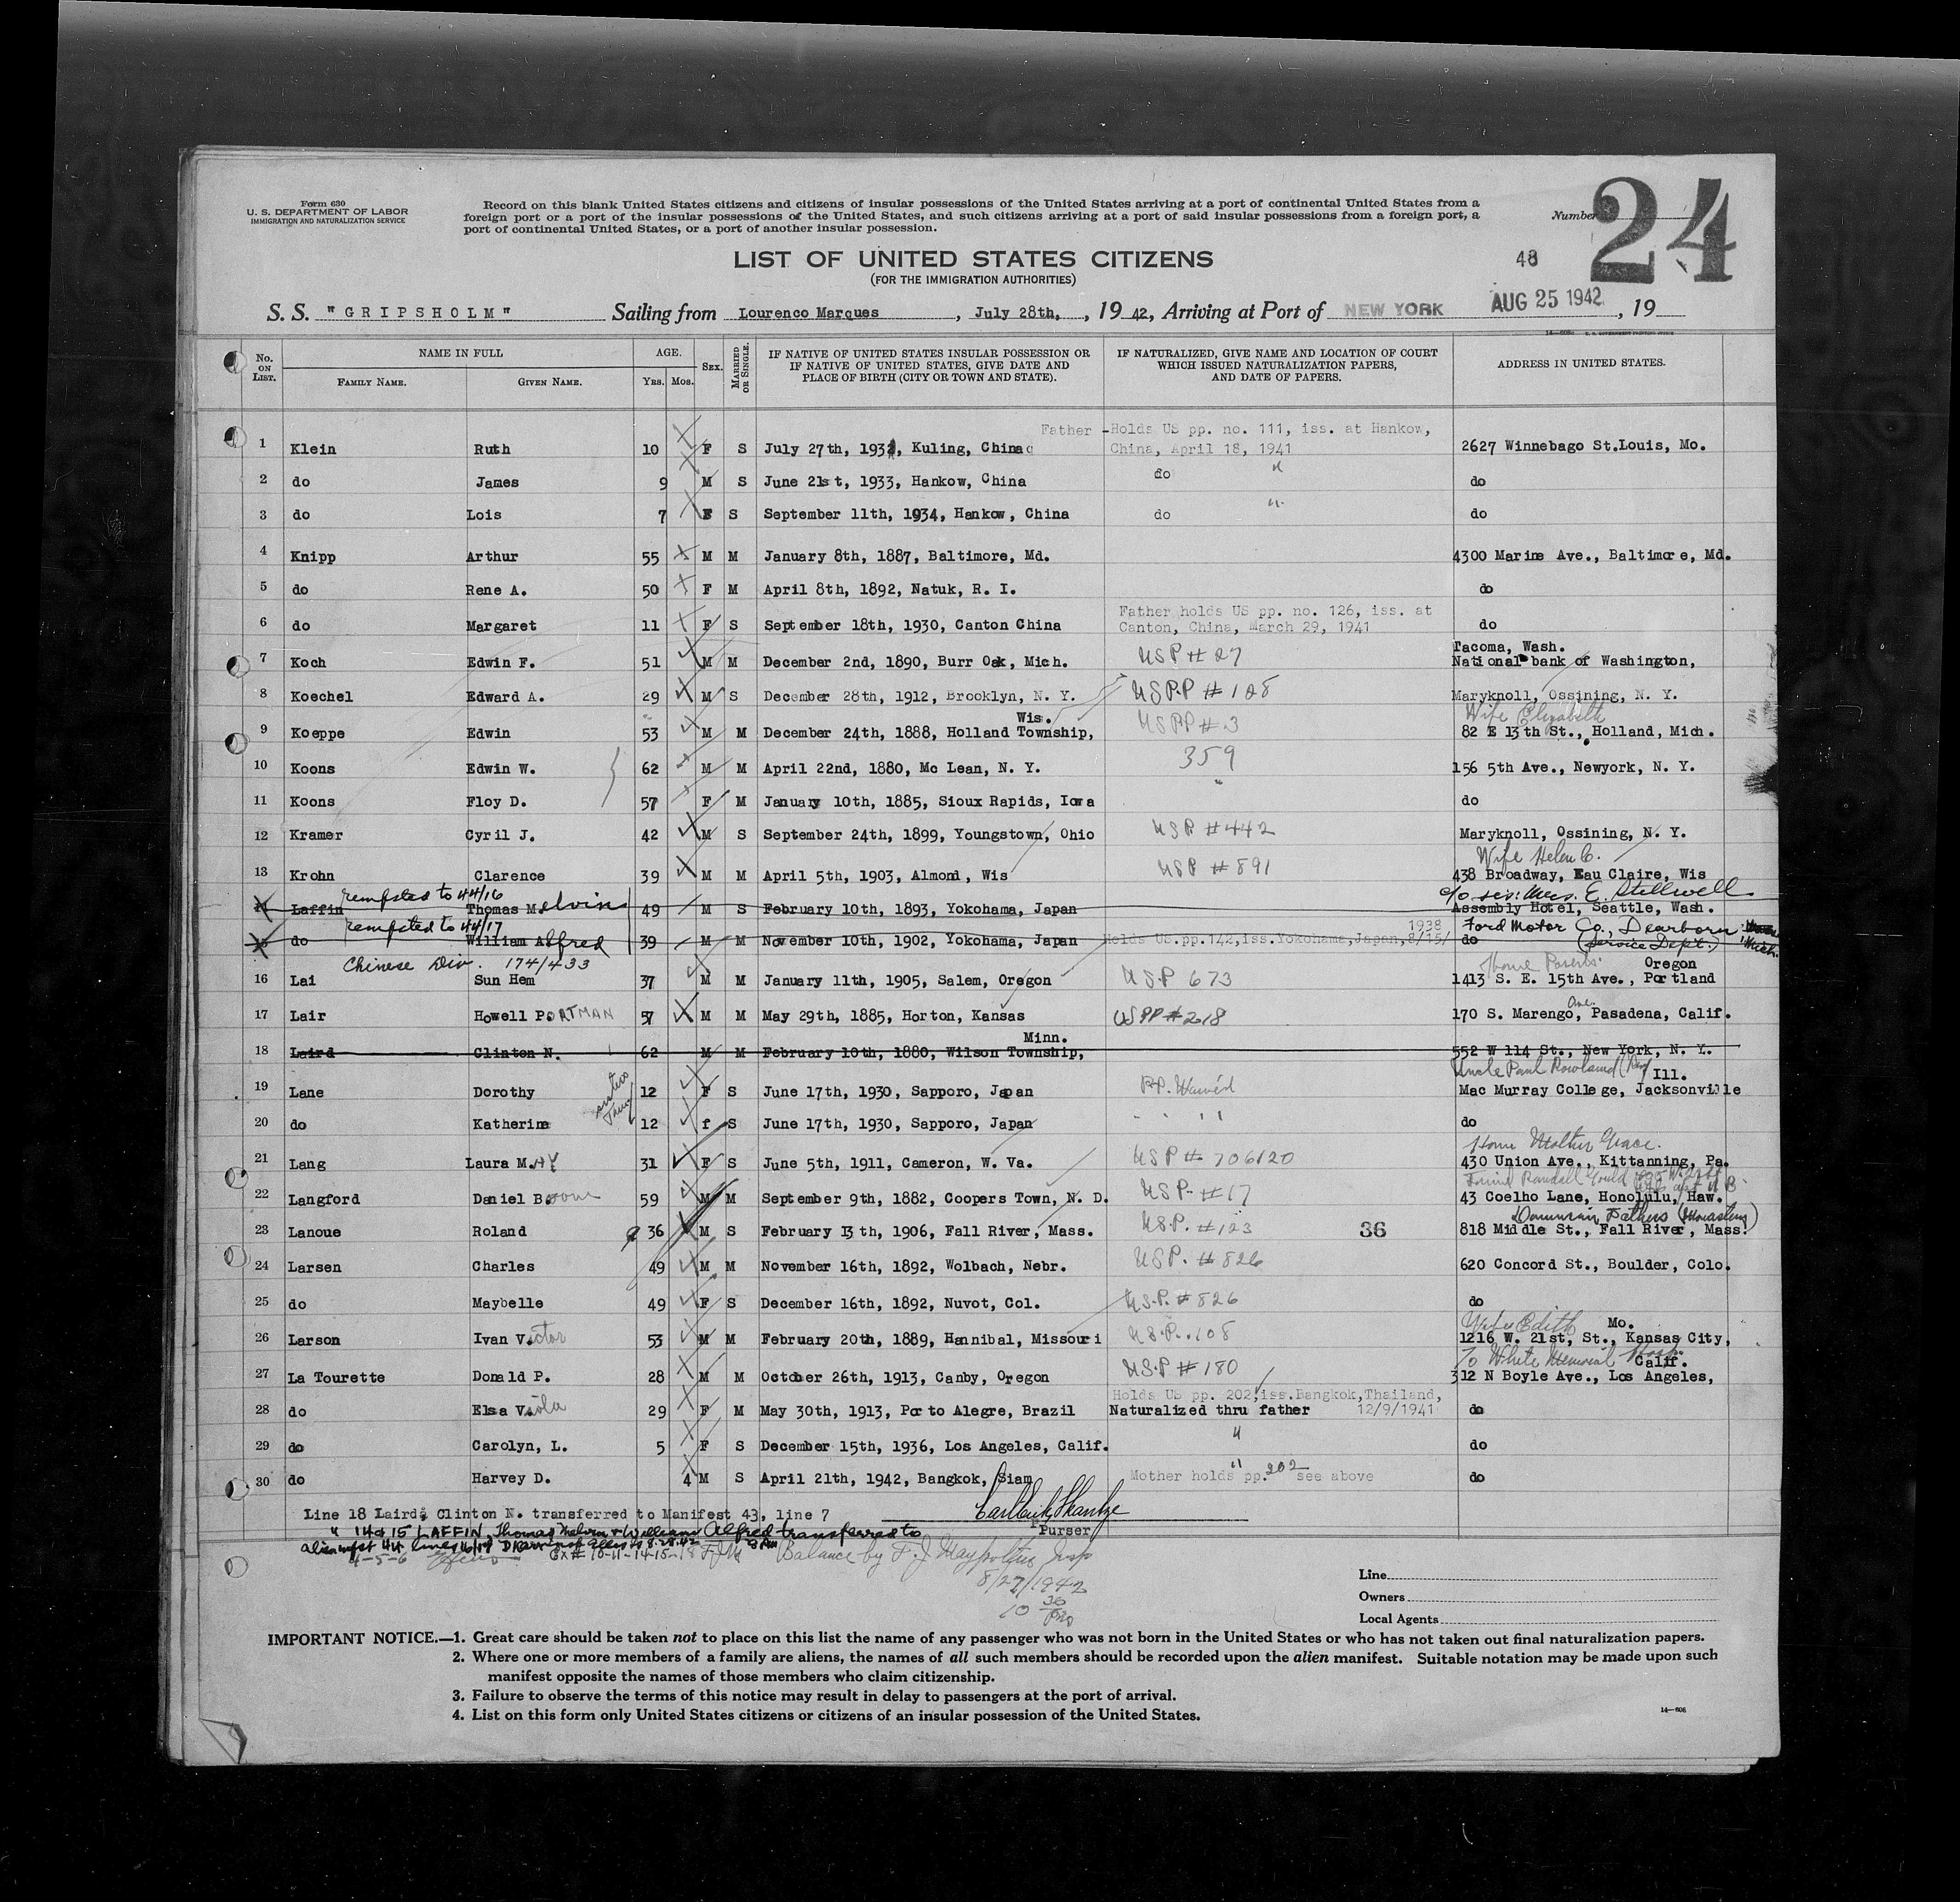 Form 630
U. S. DEPARTMENT OF LABOR
IMMIGRATION AND NATURALIZATION SERVICE
Record on this blank United States citizens and citizens of insular possessions of the United States arriving at a port of continental United States from a
foreign port or a port of the insular possessions of the United States, and such citizens arriving at a port of said insular possessions from a foreign port, a
port of continental United States, or a port of another insular possession.
Number 24
LIST OF UNITED STATES CITIZENS
48
(FOR THE IMMIGRATION AUTHORITIES)
S. S. "GRIPSHOLM" Sailing from Lourenco Marques, July 28th, 1942, Arriving at Port of NEW YORK AUG 25 1942, 19
No. ON LIST. NAME IN FULL FAMILY NAME. GIVEN NAME. AGE. YRS. MOS. SEX. MARRIED OR SINGLE. IF NATIVE OF UNITED STATES INSULAR POSSESSION OR IF NATIVE OF UNITED STATES, GIVE DATE AND PLACE OF BIRTH (CITY OR TOWN AND STATE). IF NATURALIZED, GIVE NAME AND LOCATION OF COURT WHICH ISSUED NATURALIZATION PAPERS, AND DATE OF PAPERS. ADDRESS IN UNITED STATES.
Father - Holds US pp. no. 111, iss. at Hankow,
1 Klein Ruth 10 F S July 27th, 1932, Kuling, China China, April 18, 1941 2627 Winnebago St.Louis, Mo.
2 do James 9 M S June 21st, 1933, Hankow, China do " do
3 do Lois 7 F S September 11th, 1934, Hankow, China do " do
4 Knipp Arthur 55 M M January 8th, 1887, Baltimore, Md. 4300 Marine Ave., Baltimore, Md.
5 do Rene A. 50 F M April 8th, 1892, Natuk, R. I. do
Father holds US pp. no. 126, iss. at
6 do Margaret 11 F S September 18th, 1930, Canton China Canton, China, March 29, 1941 do
Tacoma, Wash.
7 Koch Edwin F. 51 M M December 2nd, 1890, Burr Oak, Mich. USP # 27 National bank of Washington,
8 Koechel Edward A. 29 M S December 28th, 1912, Brooklyn, N. Y. USPP # 128 Maryknoll, Ossining, N. Y.
Wis. Wife Elizabeth
9 Koeppe Edwin 53 M M December 24th, 1888, Holland Township, USPP # 3 82 E 13th St., Holland, Mich.
10 Koons Edwin W. 62 M M April 22nd, 1880, Mc Lean, N. Y. 359 156 5th Ave., Newyork, N. Y.
11 Koons Floy D. 57 F M January 10th, 1885, Sioux Rapids, Iowa " do
12 Kramer Cyril J. 42 M S September 24th, 1899, Youngstown, Ohio USP #442 Maryknoll, Ossining, N. Y.
Wife Helen C.
13 Krohn Clarence 39 M M April 5th, 1903, Almond, Wis USP #891 438 Broadway, Eau Claire, Wis
rempsted to 44/16 c/o sis: Mrs. E. Stillwell
14 Laffin Thomas Melvin 49 M S February 10th, 1893, Yokohama, Japan Assembly Hotel, Seattle, Wash.
rempsted to 44/17 1938 Ford Motor Co., Dearborn Mich.
15 do William Alfred 39 M M November 10th, 1902, Yokohama, Japan Holds US.pp.142,iss.Yokohama,Japan,8/15/ do (Service Dept.)
Chinese Div. 174/433 Home Parents. Oregon
16 Lai Sun Hem 37 M M January 11th, 1905, Salem, Oregon USP 673 1413 S. E. 15th Ave., Portland
17 Lair Howell PORTMAN 57 M M May 29th, 1885, Horton, Kansas USPP #218 170 S. Marengo Ave., Pasadena, Calif.
Minn.
18 Laird Clinton N. 62 M M February 10th, 1880, Wilson Township, 552 W 114 St., New York, N. Y.
Uncle Paul Rowland (Rev) Ill.
19 Lane Dorothy sisters 12 F S June 17th, 1930, Sapporo, Japan P.P. Waived Mac Murray College, Jacksonville
20 do Katherine 12 f S June 17th, 1930, Sapporo, Japan " " do
Home Mother Grace.
21 Lang Laura MARY 31 F S June 5th, 1911, Cameron, W. Va. USP # 706120 430 Union Ave., Kittanning, Pa.
Friend Randall Gould
22 Langford Daniel Boone 59 M M September 9th, 1882, Coopers Town, N. D. USP- #17 43 Coelho Lane, Honolulu, Haw.
Dominican Fathers (Monastery)
23 Lanoue Roland 36 M S February 13th, 1906, Fall River, Mass. U.S.P. #123 36 818 Middle St., Fall River, Mass.
24 Larsen Charles 49 M M November 16th, 1892, Wolbach, Nebr. USP. #826 620 Concord St., Boulder, Colo.
25 do Maybelle 49 F S December 16th, 1892, Nuvot, Col. U.S.P. #826 do
Wife Edith Mo.
26 Larson Ivan Victor 53 M M February 20th, 1889, Hannibal, Missouri U.S.P. 108 1216 W. 21st, St., Kansas City,
To White Memorial Hosp. Calif.
27 La Tourette Donald P. 28 M M October 26th, 1913, Canby, Oregon U.S.P #180 312 N Boyle Ave., Los Angeles,
Holds US pp. 202,iss.Bangkok,Thailand,
28 do Elsa Viola 29 F M May 30th, 1913, Porto Alegre, Brazil Naturalized thru father 12/9/1941 do
29 do Carolyn, L. 5 F S December 15th, 1936, Los Angeles, Calif. " do
30 do Harvey D. 4 M S April 21th, 1942, Bangkok, Siam Mother holds pp. 202 see above do
Line 18 Laird, Clinton N. transferred to Manifest 43, line 7
" 14 & 15 LAFFIN, Thomas Melvin & William Alfred transferred to
Purser
alien mfst 44 lines 16/17
4-5-6 Ex# 10-11-14-15-18 FJM Balance by F. J. Insp
8/27/1942
10 30
Line
Owners
Local Agents
IMPORTANT NOTICE.—1. Great care should be taken not to place on this list the name of any passenger who was not born in the United States or who has not taken out final naturalization papers.
2. Where one or more members of a family are aliens, the names of all such members should be recorded upon the alien manifest. Suitable notation may be made upon such
manifest opposite the names of those members who claim citizenship.
3. Failure to observe the terms of this notice may result in delay to passengers at the port of arrival.
4. List on this form only United States citizens or citizens of an insular possession of the United States.
14—608